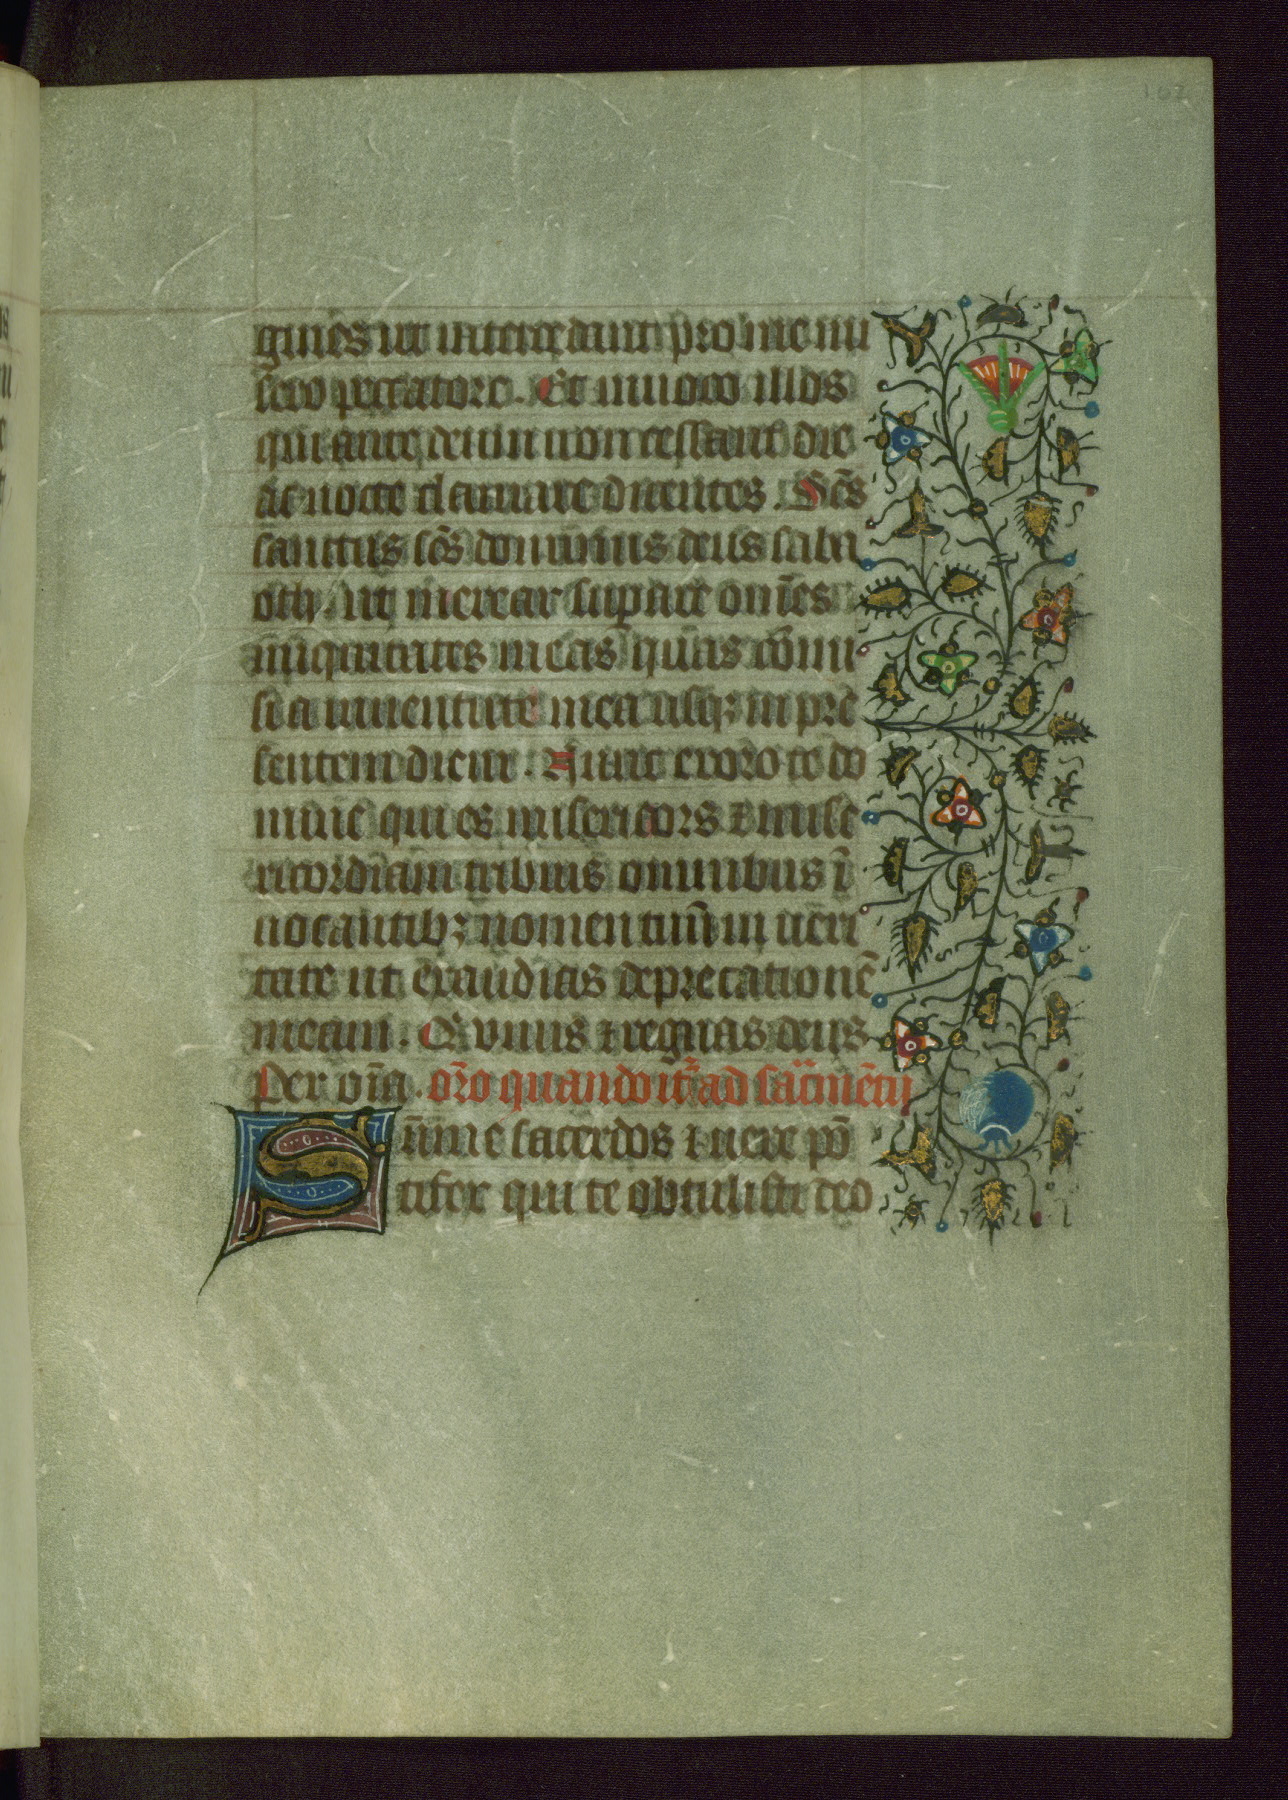 102
guies ut intercedant pro me mi
sero peccatore. Et inuoco illos
qui ante deum non cessant die
ac nocte clamare dicentes. Sc̄s
sanctus sc̄s dominus deus saba
oth. ut merear supare om̄es
iniquitates meas quas cōmi
si a iuuentute mea usqꝫ in pre
sentem diem. Nunc exoro te do
mine qui es misericors ⁊ mise
ricordiam tribuis omnibus ī
uocantibꝫ nomen tuū in ueri
tate ut exaudias deprecationē
meam. Q̄ viuis ⁊ regnas deus
Per om̄a. or̄o quando it̄ ad sac̄mētū
Summe sacerdos ⁊ uere pō
tifex qui te obtulisti deo